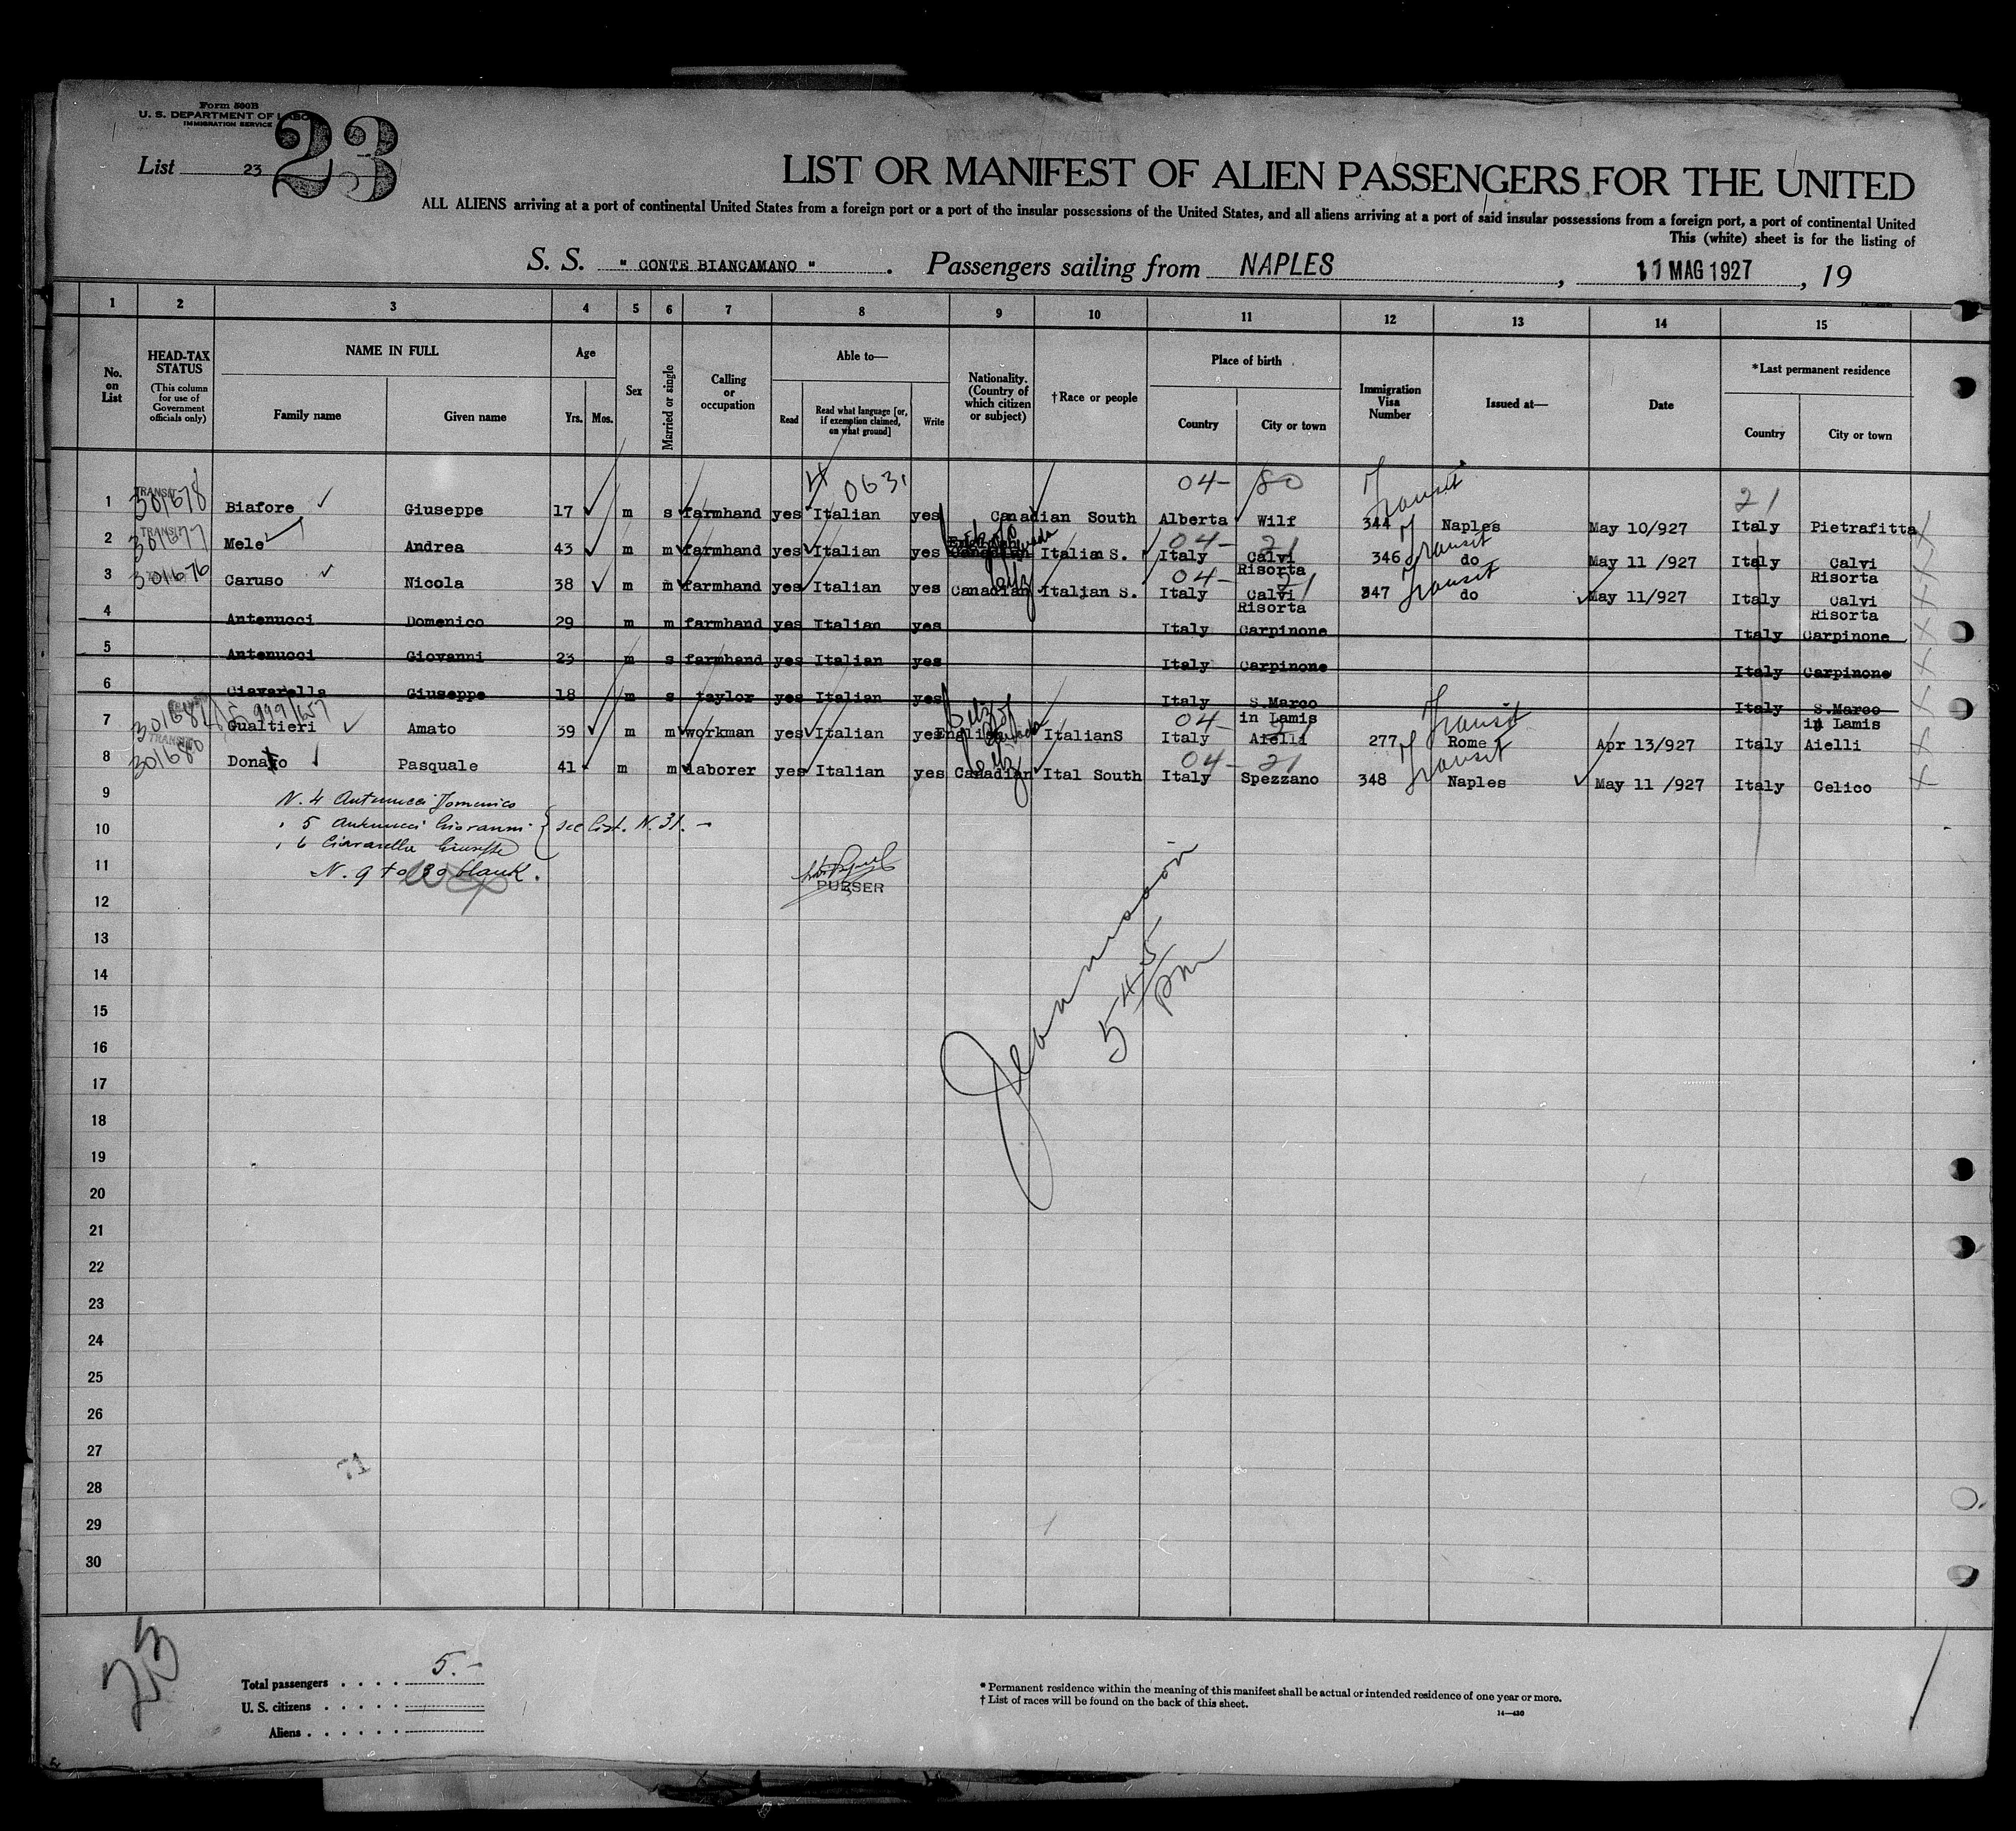 Form 500B
U. S. DEPARTMENT OF LABOR
IMMIGRATION SERVICE
23
List 23
LIST OR MANIFEST OF ALIEN PASSENGERS FOR THE UNITED
ALL ALIENS arriving at a port of continental United States from a foreign port or a port of the insular possessions of the United States, and all aliens arriving at a port of said insular possessions from a foreign port, a port of continental United
This (white) sheet is for the listing of
S. S. " CONTE BIANCAMANO " . Passengers sailing from NAPLES , 11 MAG 1927 , 19
1 2 3 4 5 6 7 8 9 10 11 12 13 14 15
No. on List
HEAD-TAX STATUS
(This column for use of Government officials only)
NAME IN FULL
Family name
Given name
Age
Yrs.
Mos.
Sex
Married or single
Calling or occupation
Able to—
Read
Read what language [or, if exemption claimed, on what ground]
Write
Nationality. (Country of which citizen or subject)
†Race or people
Place of birth
Country
City or town
Immigration Visa Number
Issued at—
Date
*Last permanent residence
Country
City or town
0631 04- 80 Transit 21
1 TRANSIT 301678 Biafore Giuseppe 17 m s farmhand yes Italian yes Canadian South Alberta Wilf 344 Naples May 10/927 Italy Pietrafitta
04- 21 Transit
2 TRANSIT 301677 Mele Andrea 43 m m farmhand yes Italian yes Canadian Italian S. Italy Calvi Risorta 346 do May 11 /927 Italy Calvi Risorta
04- 21 Transit
3 301676 Caruso Nicola 38 m m farmhand yes Italian yes Canadian Italian S. Italy Calvi Risorta 347 do May 11/927 Italy Calvi Risorta
4 Antenucci Domenico 29 m m farmhand yes Italian yes Italy Carpinone Italy Carpinone
5 Antenucci Giovanni 23 m s farmhand yes Italian yes Italy Carpinone Italy Carpinone
6 Ciavarella Giuseppe 18 m s taylor yes Italian yes Italy S.Marco in Lamis Italy S.Marco in Lamis
04- 21 Transit
7 Gualtieri Amato 39 m m workman yes Italian yes English ItalianS Italy Aielli 277 Rome Apr 13/927 Italy Aielli
04- 21 Transit
8 TRANSIT 301680 Donato Pasquale 41 m m laborer yes Italian yes Canadian Ital South Italy Spezzano 348 Naples May 11 /927 Italy Celico
9
N. 4 Antenucci Domenico
" 5 Antenucci Giovanni } see List. N. 31. -
" 6 Ciavarella Giuseppe
N. 9 to 30 blank.
PURSER
10
11
12
13
14
15
16
17
18
19
20
21
22
23
24
25
26
27
28
29
30
5 45 pm
71
23
Total passengers . . . . 5.-
U. S. citizens . . . . .
Aliens . . . . . .
* Permanent residence within the meaning of this manifest shall be actual or intended residence of one year or more.
† List of races will be found on the back of this sheet.
14—430